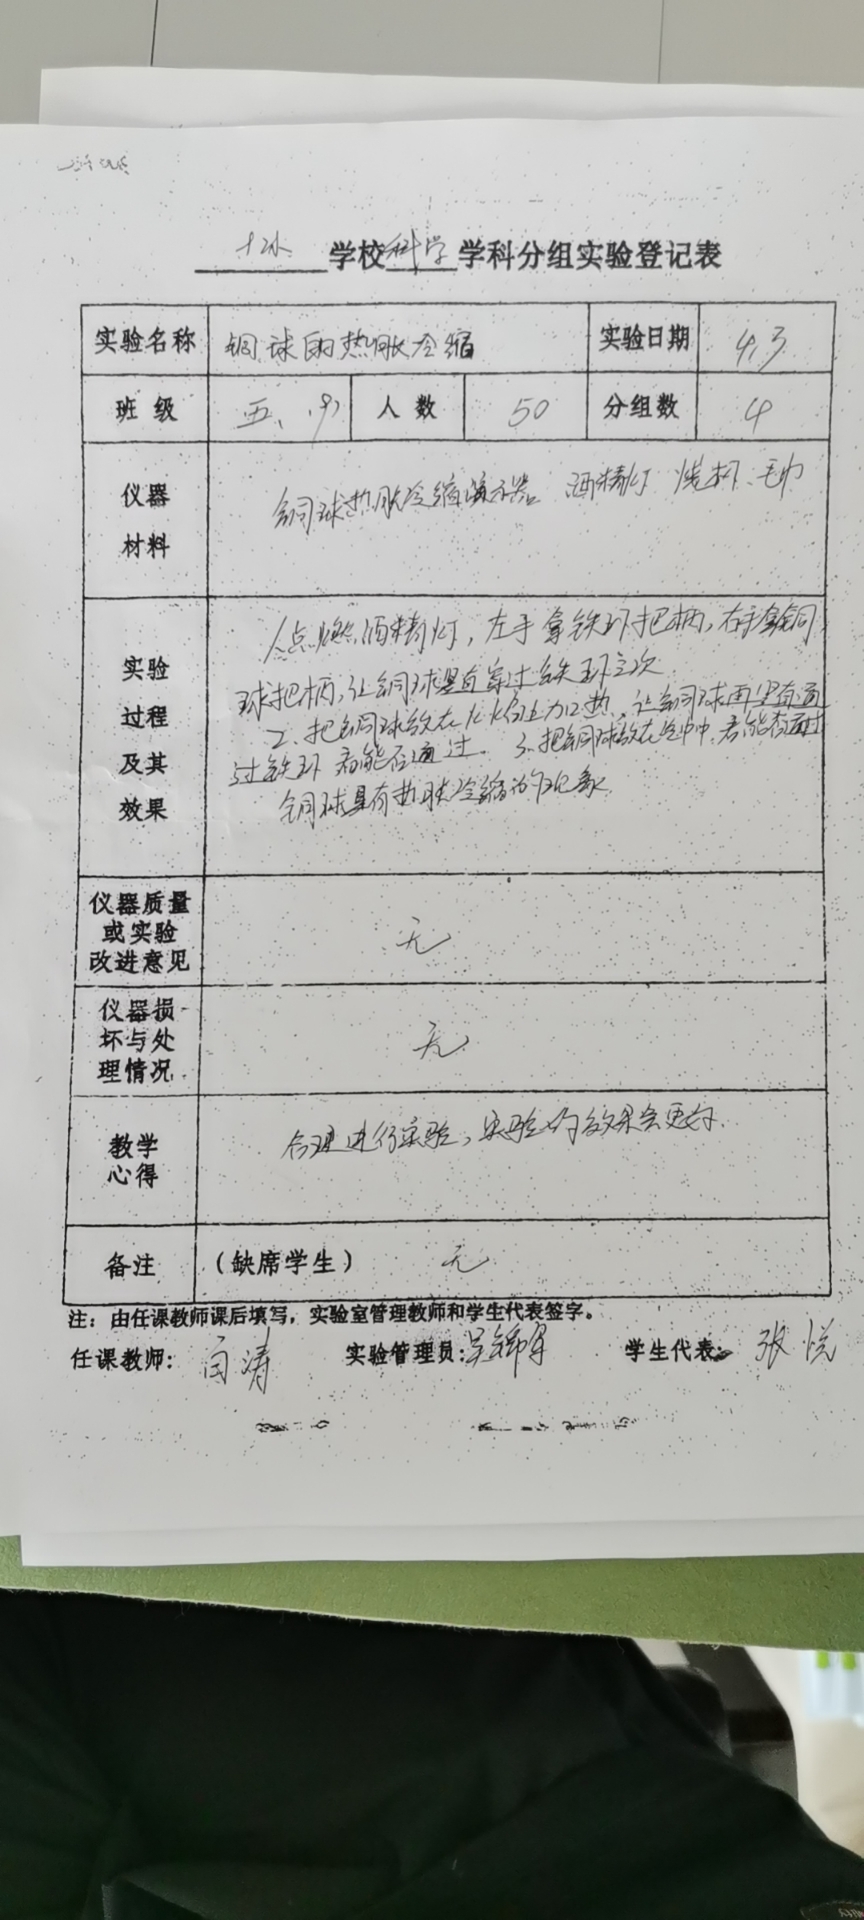 学校科学学科分组实验登记表
实验名称 铜球的热胀冷缩 实验日期 4.3
班级 五、 人数 50 分组数 4
仪器
材料
铜球热胀冷缩演示器 酒精灯 烧杯、毛巾
实验
过程
及其
效果
1、点燃酒精灯，左手拿铁环把柄，右手拿铜
球把柄，让铜球垂直穿过铁环三次
2、把铜球放在火焰上加热，让铜球再垂直通
过铁环 看能否通过. 3、把铜球放在 中，看能否通过
铜球具有热胀冷缩的现象
仪器质量
或实验
改进意见
无
仪器损
坏与处
理情况
无
教学
心得
合理进行实验，实验的效果会更好.
备注 （缺席学生） 无
注：由任课教师课后填写，实验室管理教师和学生代表签字。
任课教师： 白涛 实验管理员： 吴 学生代表： 张悦